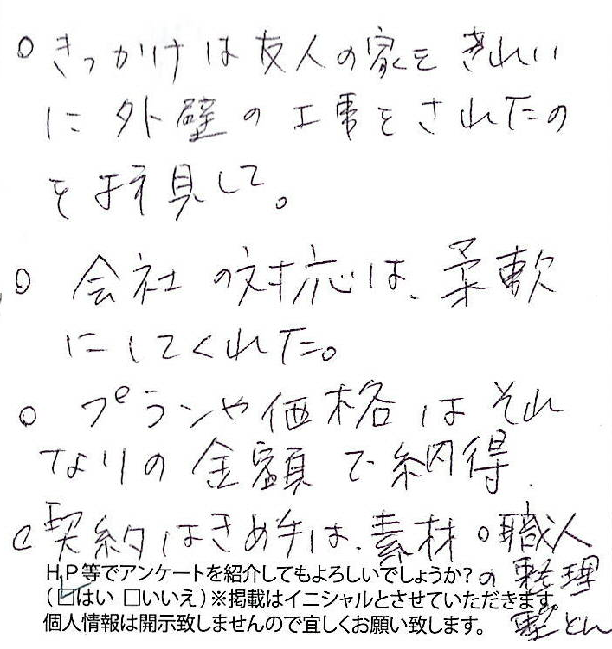 ○ きっかけは友人の家をきれい
に外壁の工事をされたの
を拝見して。
○ 会社の対応は、柔軟
にしてくれた。
○ プランや価格はそれ
なりの金額で納得.
○ 契約はきめ手は、素材。職人
の整理
整とん
H.P等でアンケートを紹介してもよろしいでしょうか?
(☑はい □いいえ)※掲載はイニシャルとさせていただきます。
個人情報は開示致しませんので宜しくお願い致します。